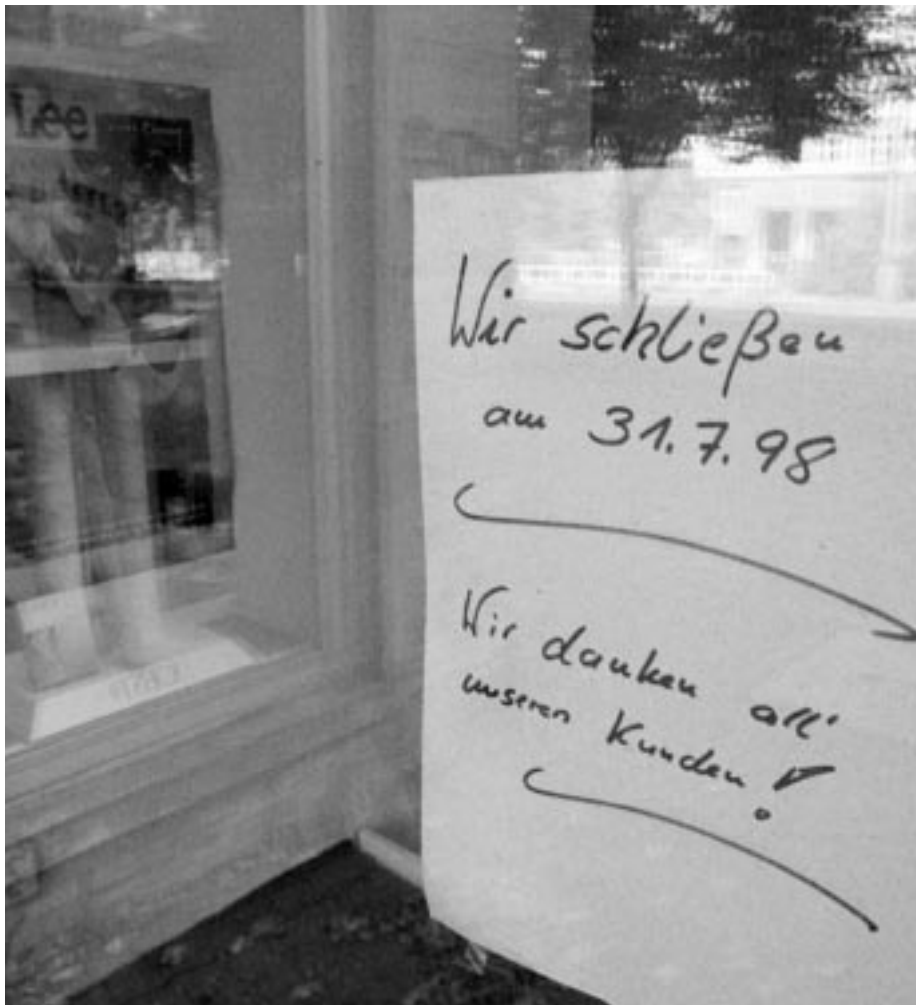 Lee
Wir schließen
am 31.7.98
Wir danken all'
unseren Kunden!